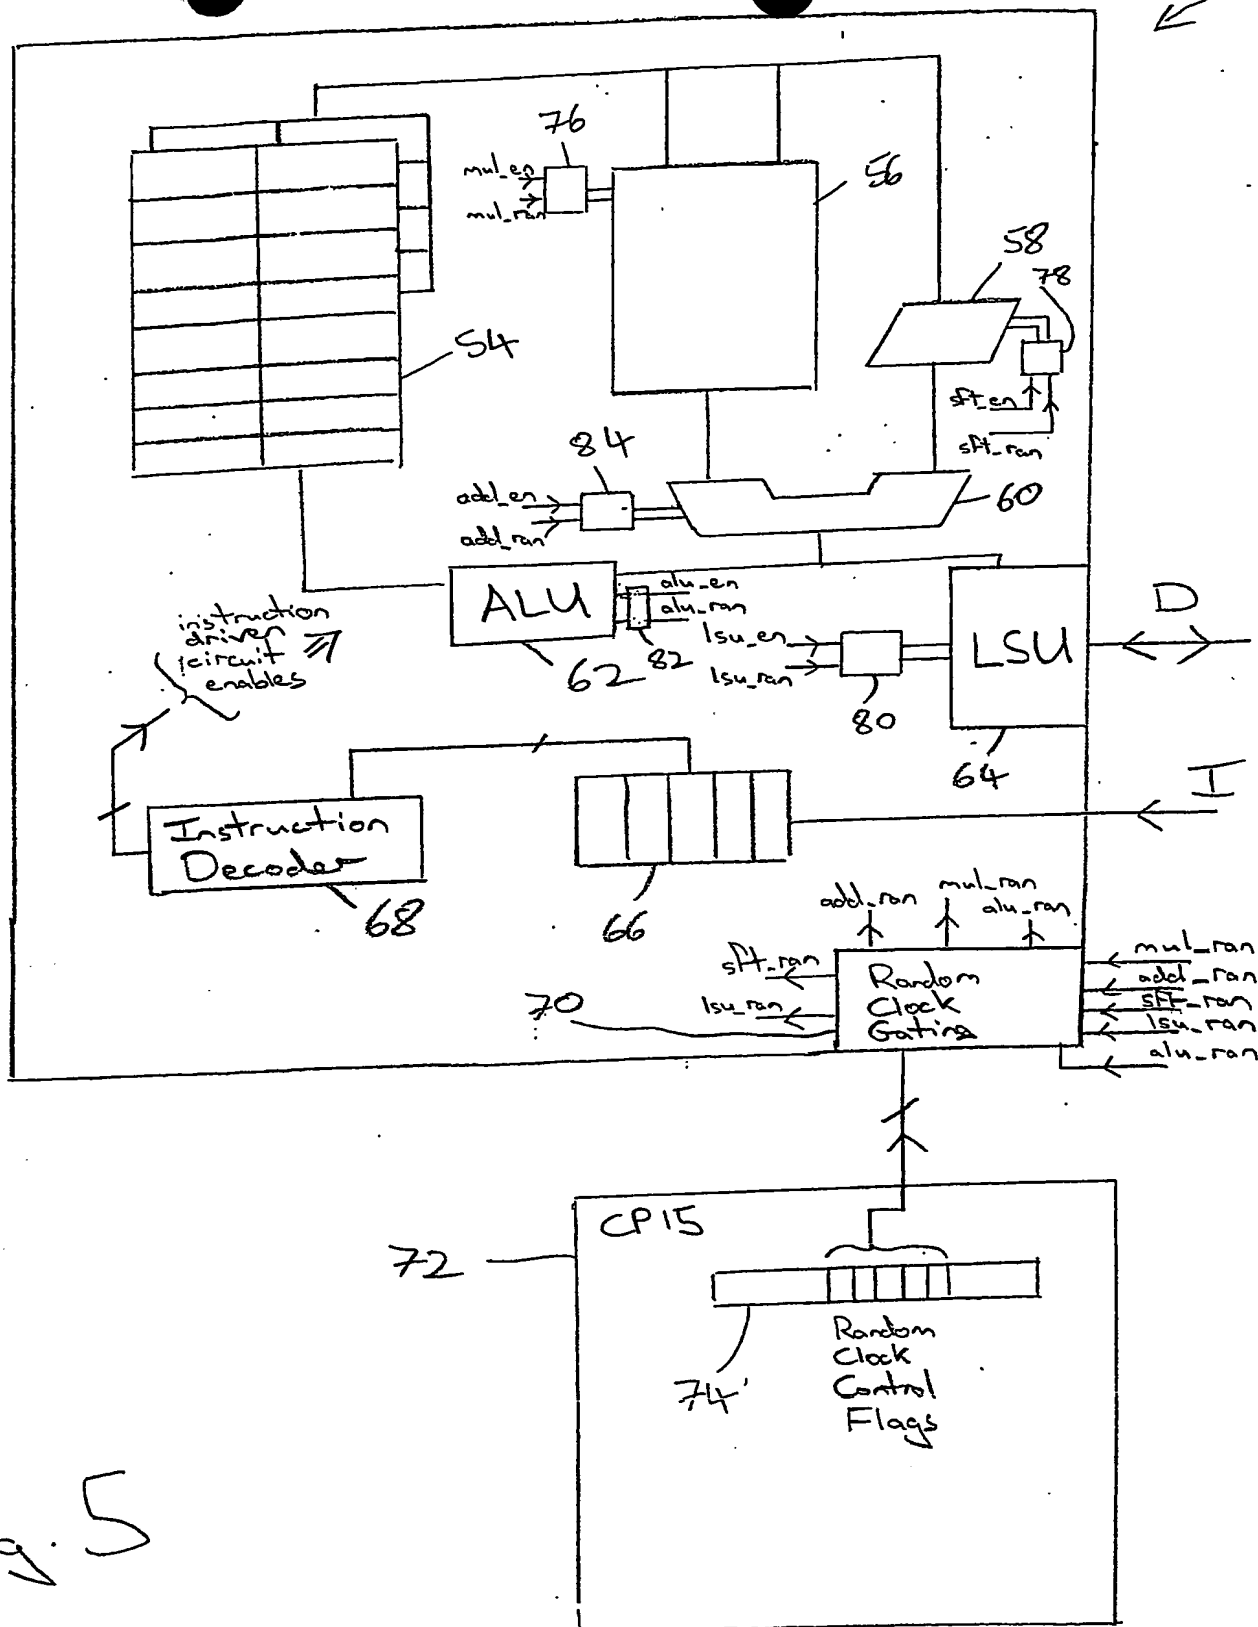 76
mul_en
mul_ran
56
58
78
54
sft_en
sft_ran
84
add_en
add_ran
60
ALU
alu_en
alu_ran
62
82
instruction
driven
circuit
enables
lsu_en
lsu_ran
80
LSU
D
64
I
Instruction
Decoder
68
66
add_ran
mul_ran
alu_ran
sft_ran
lsu_ran
70
Random
Clock
Gating
mul_ran
add_ran
sft_ran
lsu_ran
alu_ran
CP15
72
74
Random
Clock
Control
Flags
g. 5